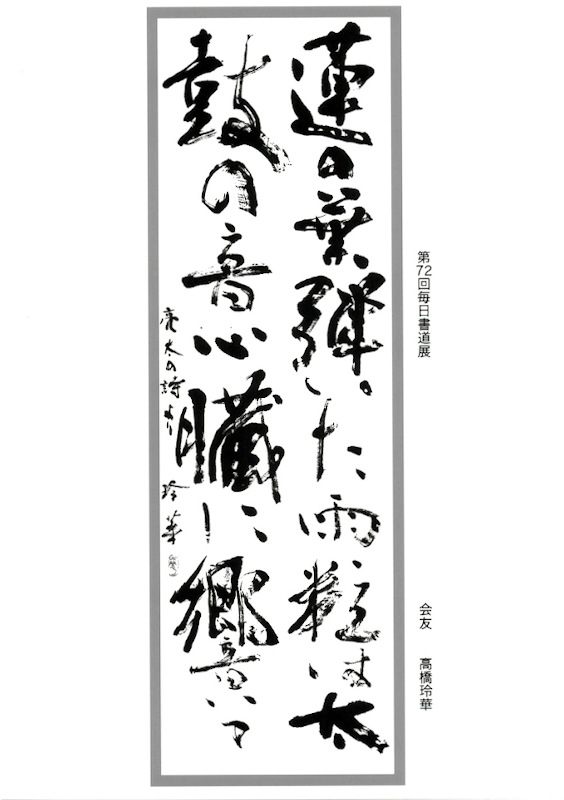 蓮の葉弾いた雨粒は太
鼓の音心臓に響いて
亮太の詩より 玲華
第72回毎日書道展
会友 高橋玲華